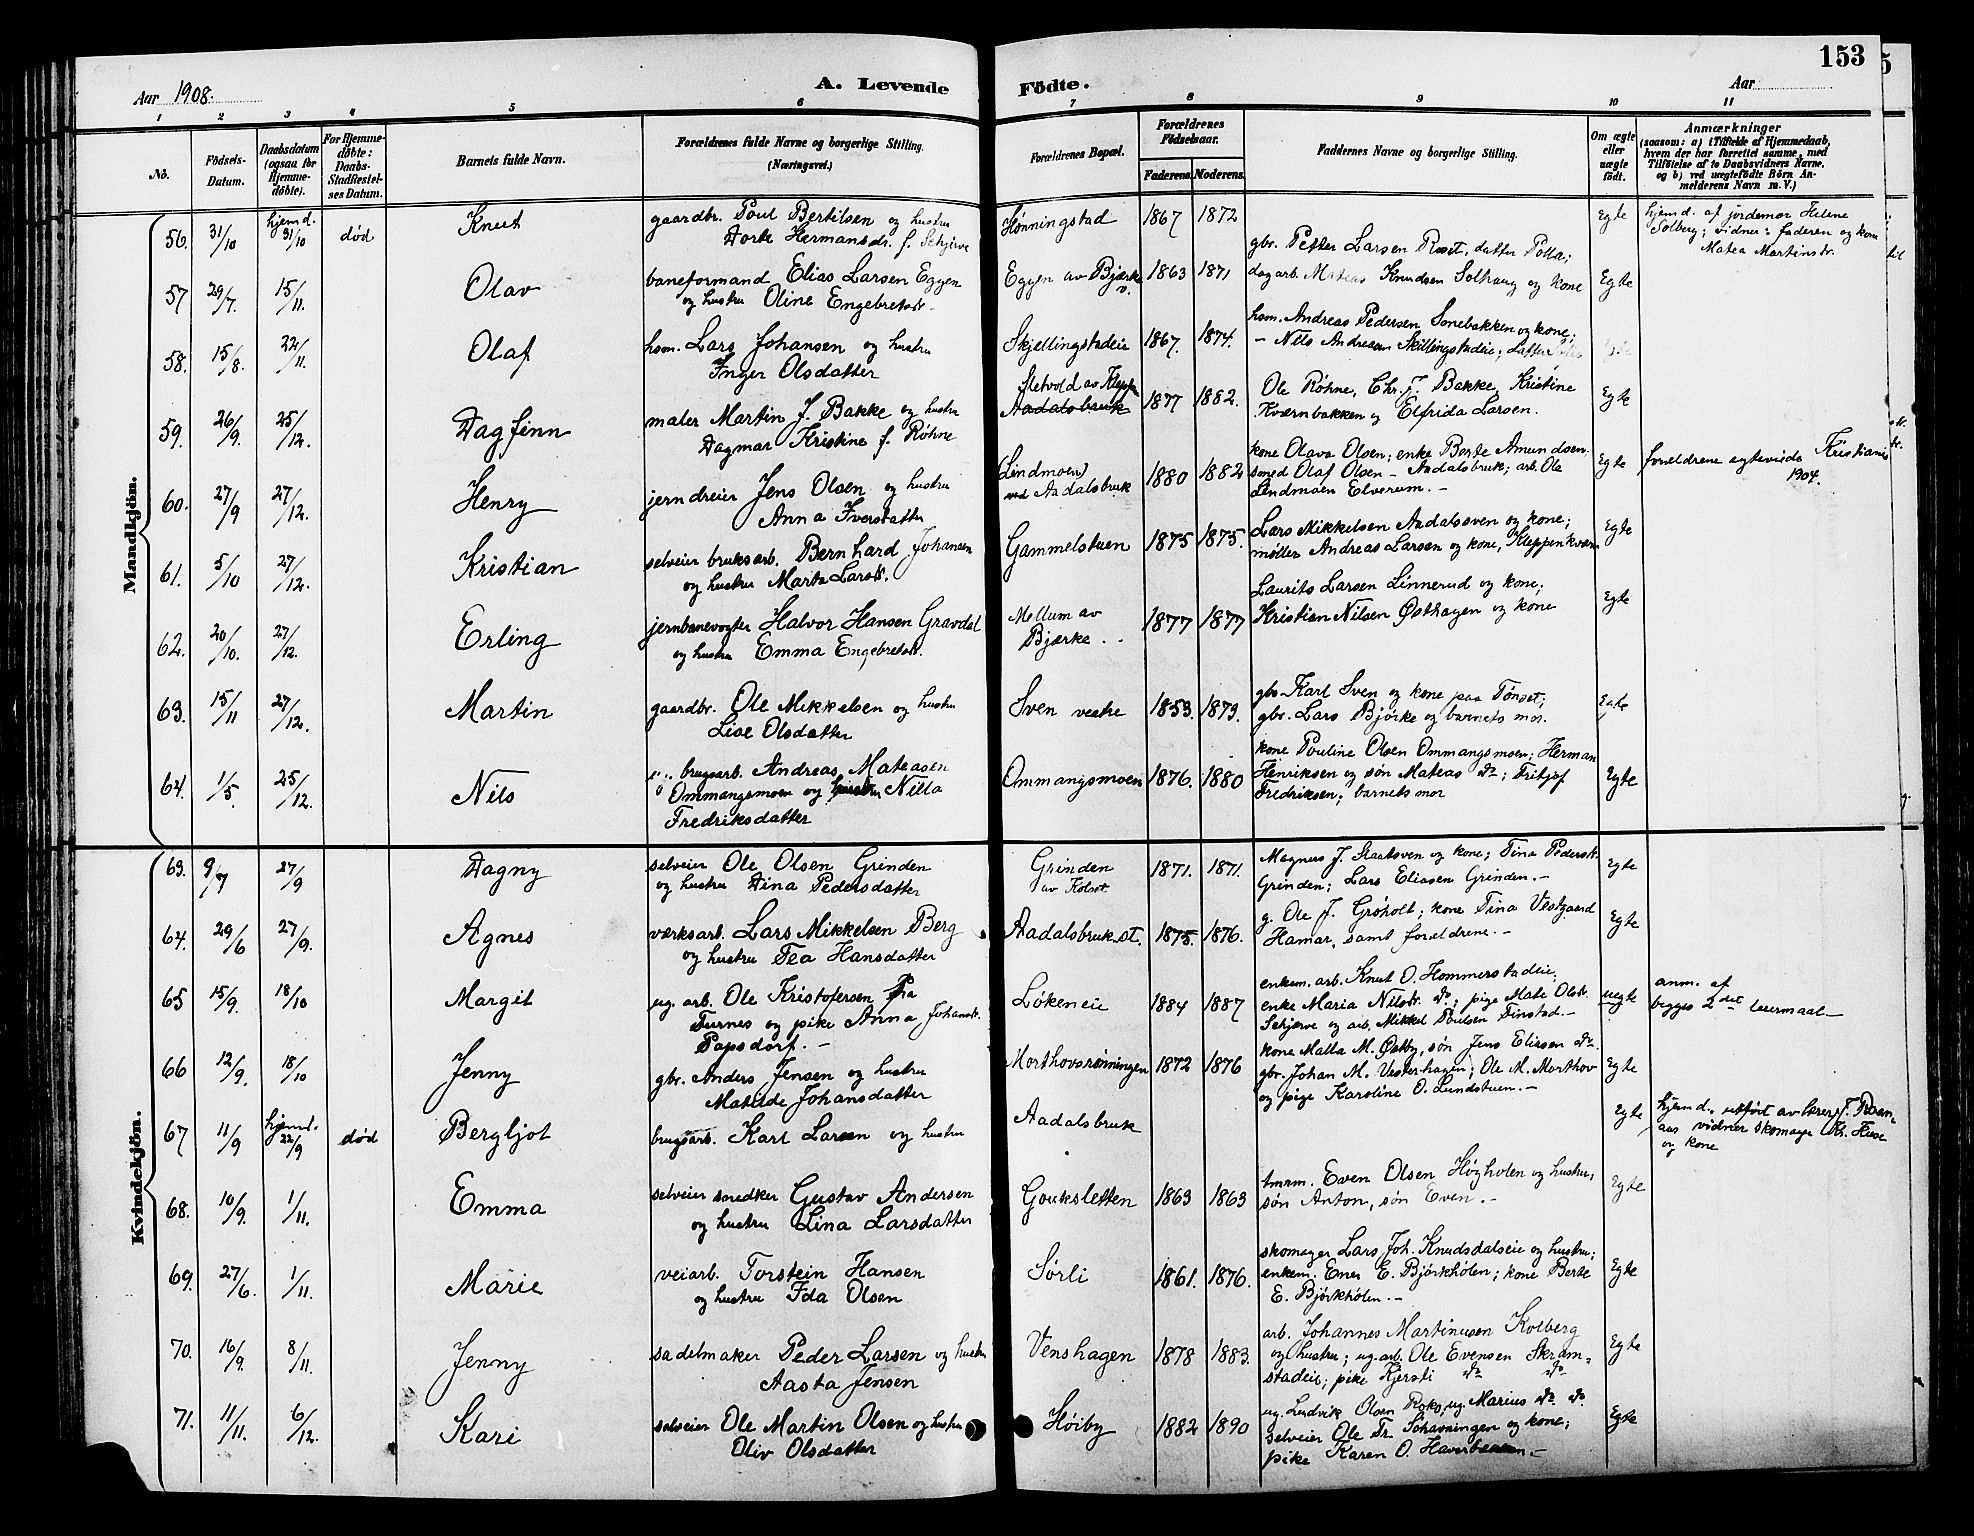 153
Aar 1908.
A. Levende Födte.
Aar
1 2 3 4 5 6 7 8 9 10 11
No.
Födsels-Datum.
Daabsdatum (ogsaa för Hjemme-döbte).
For Hjemme-döbte: Daabs-Stadfæstel-ses Datum.
Barnets fulde Navn.
Forældrenes fulde Navne og borgerlige Stilling. (Næringsvei.)
Forældrenes Bopæl.
Forældrenes Födselsaar.
Faderens. Moderens.
Faddernes Navne og borgerlige Stilling.
Om ægte eller uægte födt.
Anmærkninger
(saasom: a) i Tilfælde af Hjemmedaab, hvem der har forrettet samme, med Tilföielse af to Daabsvidners Navne, og b) ved uægtefödte Börn An-melderens Navn m. V.)
Mandkjön.
56. 31/10 hjemd. 31/10 död Knut
gaardbr. Poul Bertilsen og hustru
Dorte Hermansdr. f. Schjerve
Hønningstad 1867 1872
Egte
hjemd. af jordemor Helene
Solberg; vidner: faderen og kone
Matea Martinstr.
57 29/7. 15/11. Olav
baneformand Elias Larsen Eggen
og hustru Oline Engebretsdr.
Eggen av Bjærke 1863 1871
gbr. Petter Larsen Røset, datter Polla;
dagarb. Mateas Knudsen Solhaug og kone
Egte
58. 15/8. 22/11. Olaf
hsm. Lars Johansen og hustru
Inger Olsdatter
Skjellingstadeie 1867. 1874.
hsm. Andreas Pedersen Sonebakken og kone;
- Nils Andresen Skillingstadeie;
59. 26/9. 25/12. Dagfinn
maler Martin J. Bakke og hustru
Dagmar Kristine f. Røhne
Sletvold av Kleppe
Aadalsbruk 1877 1882.
Ole Røhne, Chr. J. Bakke, Kristine
Kværnbakken og Elfrida Larsen.
Egte
60. 27/9 27/12. Henry
jerndreier Jens Olsen og hustru
Anna Iversdatter
(Lindmoen)
ved Aadalsbruk 1880 1882
kone Olava Olsen; enke Berte Amundsen
smed Olaf Olsen - Aadalsbruk; arb. Ole
Lindmoen Elverum. -
Egte
forældrene egteviede Kristiania
1904.
61. 5/10 27/12. Kristian
selveier bruksarb. Bernhard Johansen
og hustru Marta Larsdr.
Gammelstuen 1875 1875.
Lars Mikkelsen Aadalssven og kone;
møller Andreas Larsen og kone, Kleppenkværn
Egte
62. 20/10. 27/12. Erling
jernbanevogter Halvor Hansen Gravdal
og hustru Emma Engebretsdr.
Mellum av
Bjærke 1877 1877
Laurits Larsen Linnerud og kone;
Kristian Nilsen Østhagen og kone
Egte
63. 15/11 27/12. Martin
gaardbr. Ole Mikkelsen og hustru
Lise Olsdatter
Sven vestre 1853. 1873.
gbr. Karl Sven og kone paa Tønset;
gbr. Lars Bjørke og barnets mor.
Egte
64. 1/5 25/12. Nils
brugsarb. Andreas Mateasen
Ommangsmoen og hustru Nilla
Fredriksdatter
Ommangsmoen 1876. 1880
kone Pouline Olsen Ommangsmoen; Herman
Henriksen og søn Mateas do; Fritjof
Fredriksen; barnets mor
Egte
Kvindekjön.
63. 9/7 27/9 Dagny
selveier Ole Olsen Grinden
og hustru Dina Pedersdatter
Grinden
av Kolset 1871. 1871.
Magnus J. Staalsven og kone; Tina Pedersdr.
Grinden; Lars Eliasen Grinden. -
Egte
64. 29/6 27/9. Agnes
værksarb. Lars Mikkelsen Berg
og hustru Tea Hansdatter
Aadalsbruk st. 1875. 1876.
g. Ole J. Grøholt; kone Tina Vestgaard
Hamar, samt forældrene. -
Egte
65 15/9. 18/10 Margit
ug. arb. Ole Kristofersen fra
Furnes og pike Anna Johansdr.
Papsdorf. -
Løkeneie 1884 1887
enkem. arb. Knut O. Hommerstadeie;
enke Maria Nilsdr. do; pige Mate Olsdr.
Schjerve og arb. Mikkel Poulsen Finstad. -
uegte
anm. af
begges 2det leiermaal -
66 12/9. 18/10 Jenny
gbr. Anders Jensen og hustru
Matilde Johansdatter
Morthovsrønningen 1872 1876
kone Malla M. Østby, søn Jens Eliasen do.
gbr. Johan M. Vesterhagen; Ole M. Morthov
og pige Karoline O. Lundstuen. -
Egte
67 11/9 hjemd. 22/9 död Bergljot
brugsarb. Karl Larsen og hustru
Aadalsbruk
Egte
hjemd. utført av lærer J. Roan-
aas vidner skomager Kr. Huse
og kone
68. 10/9. 1/11. Emma
selveier snedker Gustav Andersen
og hustru Lina Larsdatter
Goukesletten 1863 1863
tmrm. Even Olsen Høgholen og hustru;
søn Anton, søn Even. -
Egte
69. 27/6. 1/11. Marie
veiarb. Torstein Hansen
og hustru Ida Olsen
Sørli 1861. 1876.
skomager Lars Joh. Knudsdalseie og hustru;
enkem. Ener E. Bjørkhølen; kone Berte
E. Bjørkhølen. -
Egte
70. 16/9. 8/11. Jenny
sadelmaker Peder Larsen og hustru
Aasta Jensen
Venshagen 1878 1883.
arb. Johannes Martinusen Kolberg
og hustru; ug. arb. Ole Evensen Skram-
stadeie; pike Kjersti do do
Egte
71. 11/11. 6/12. Kari
selveier Ole Martin Olsen og hustru
Oliv Olsdatter
Høiby 1882 1890
ug. Ludvik Olsen Roko, ug. Marius do do
selveier Ole Tr. Schavningen og kone;
pike Karen O.
Egte